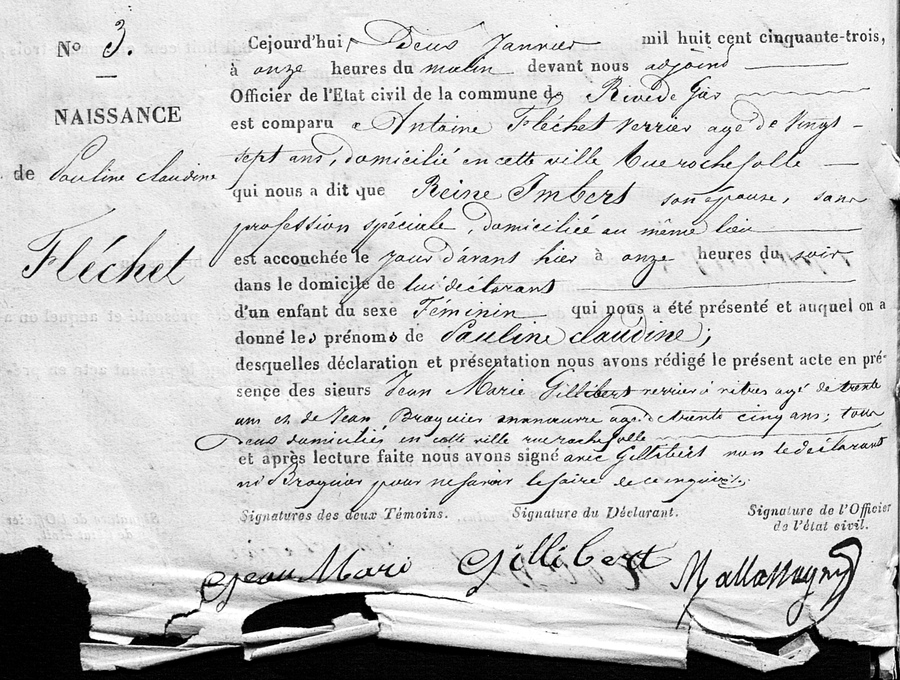 N° 3.
NAISSANCE
de Pauline claudine
Fléchet
Cejourd'hui Deux Janvier mil huit cent cinquante-trois,
à onze heures du matin devant nous adjoind
Officier de l'Etat civil de la commune de Rivede Gier
est comparu Antoine Fléchet verrier agé de vingt
sept ans, domicilié en cette ville rue rochefolle
qui nous a dit que Reine Imbert son épouse, sans
profession spéciale, domiciliée au même lieu
est accouchée le jour d'avant hier à onze heures du soir
dans le domicile de lui déclarant
d'un enfant du sexe Féminin qui nous a été présenté et auquel on a
donné les prénoms de Pauline claudine;
desquelles déclaration et présentation nous avons rédigé le présent acte en pré-
sence des sieurs Jean Marie Gillibert verrier à vitres agé de trente
ans et de Jean Broquier manœuvre agé de trente cinq ans; tous
Deux domiciliés en cette ville rue rochefolle
et après lecture faite nous avons signé avec Gillibert non le déclarant
ni Broquier pour ne savoir le faire de ce enquis.
Signatures des deux Témoins. Signature du Déclarant. Signature de l'Officier
de l'état civil.
Jean Mari Gillibert